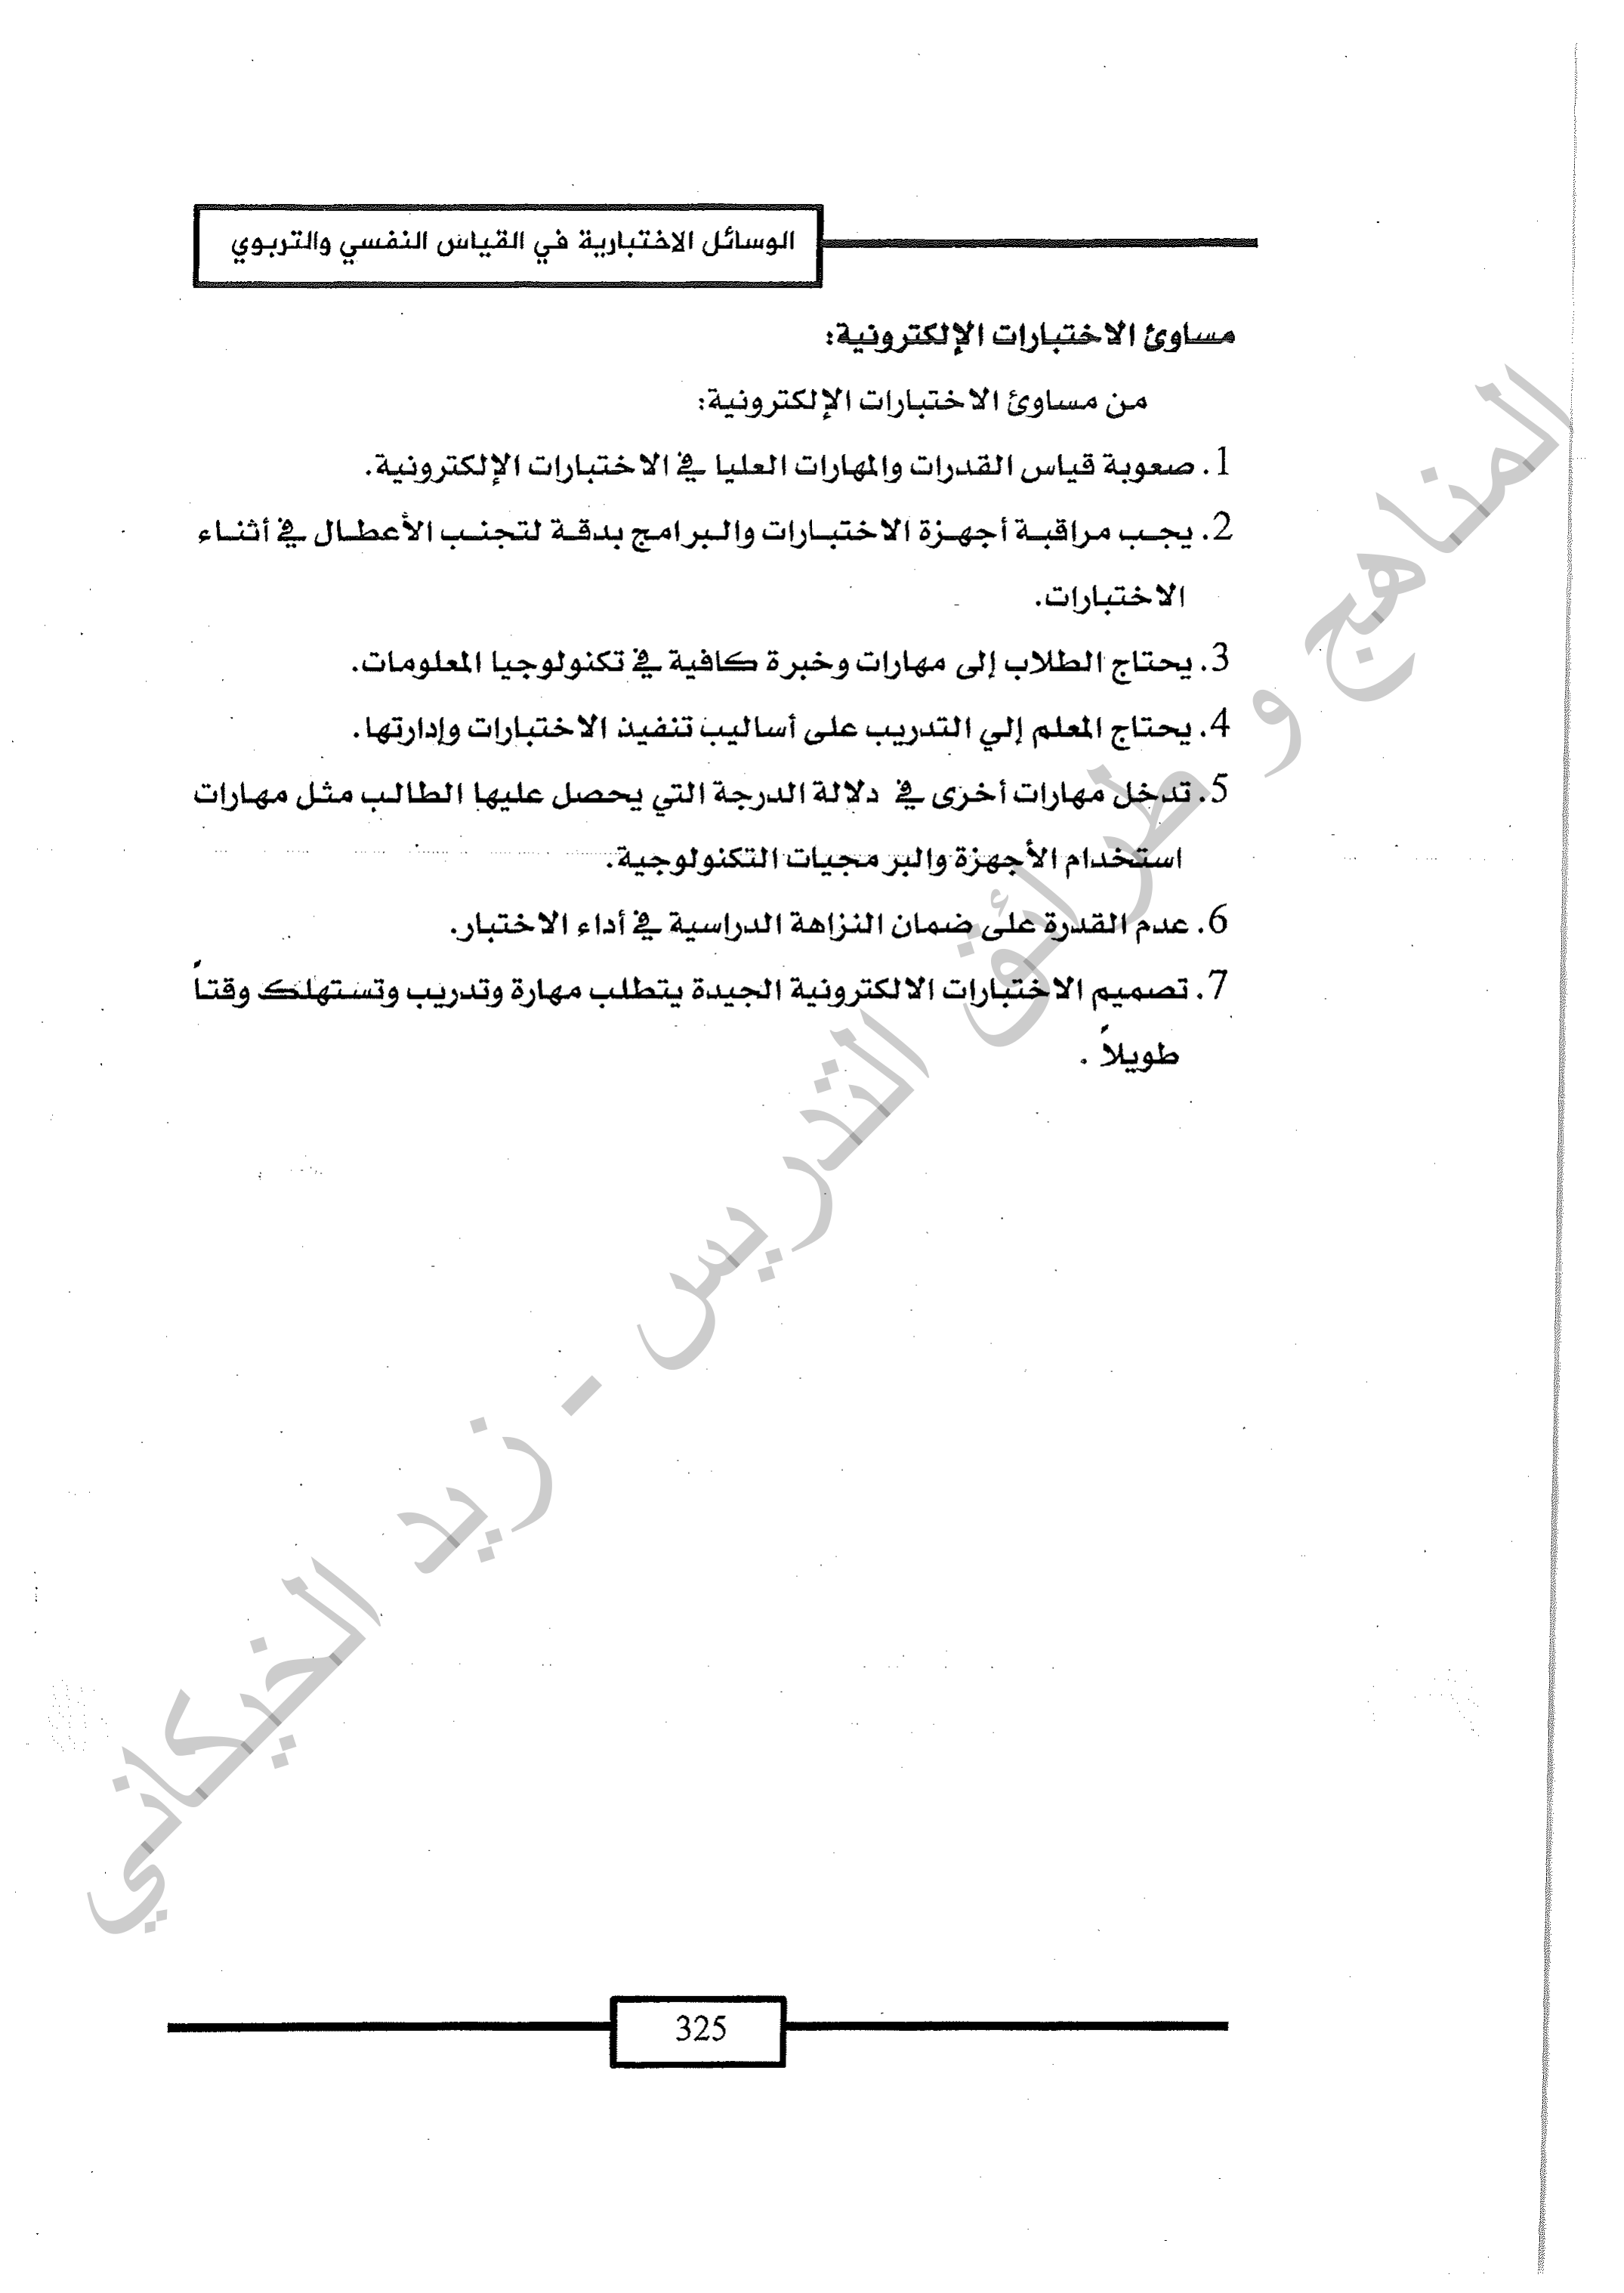 الوسائل الاختبارية في القياس النفسي والتربوي
مساوئ الاختبارات الإلكترونية:
من مساوئ الاختبارات الإلكترونية:
1. صعوبة قياس القدرات والمهارات العليا في الاختبارات الإلكترونية.
2. يجب مراقبة أجهزة الاختبارات والبرامج بدقة لتجنب الأعطال في أثناء
الاختبارات.
3. يحتاج الطلاب إلى مهارات وخبرة كافية في تكنولوجيا المعلومات.
4. يحتاج المعلم إلي التدريب على أساليب تنفيذ الاختبارات وإدارتها.
5. تدخل مهارات أخرى في دلالة الدرجة التي يحصل عليها الطالب مثل مهارات
استخدام الأجهزة والبرمجيات التكنولوجية.
6. عدم القدرة على ضمان النزاهة الدراسية في أداء الاختبار.
7. تصميم الاختبارات الالكترونية الجيدة يتطلب مهارة وتدريب وتستهلك وقتاً
طويلاً .
المناهج و طرائق التدريس - زيد الخيكاني
325